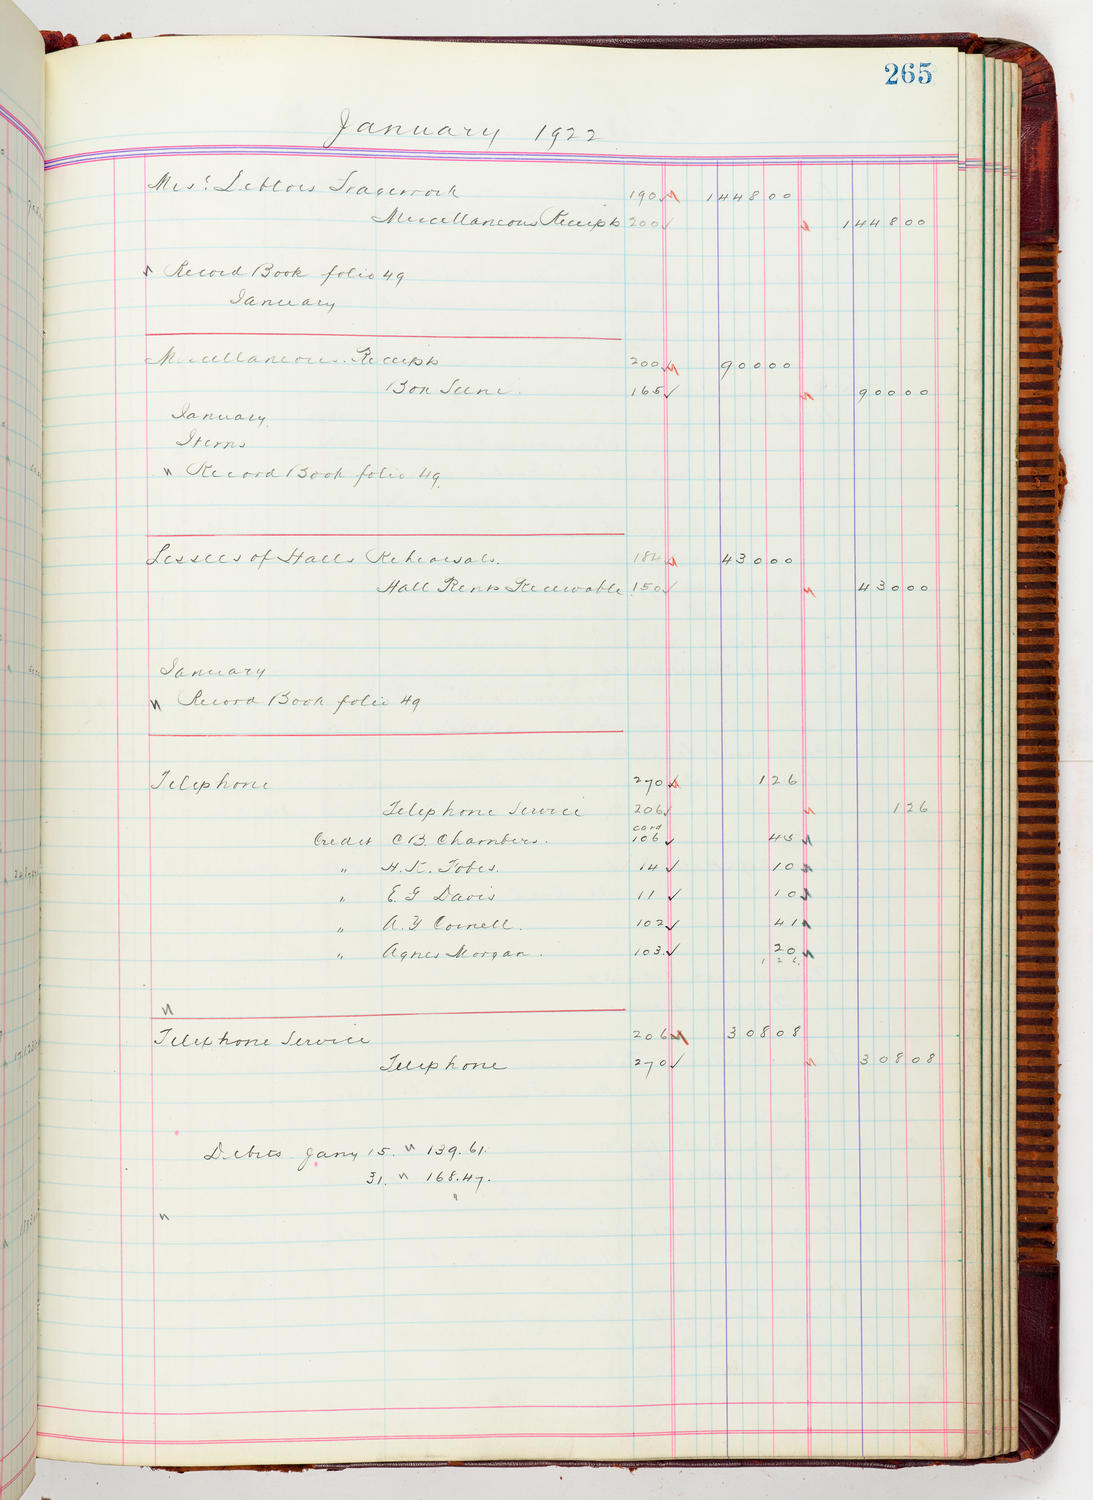 265
January 1922
190 144800
Miscellaneous Receipts 200 144800
Record Book folio 49
January
Miscellaneous Receipts 200 90000
165 90000
January
Items
" Record Book folio 49
Lessees of Halls Rehearsals. 184 43000
Hall Rents Receivable 150 43000
January
" Record Book folio 49
Telephone 270 126
Telephone Service 206 126
card
Credit C B. Chambers. 106 45
" H. K. Fobes. 14 10
" E. G Davis 11 10
" A. Y Cornell. 102 41
" Agnes Morgan. 103. 20
126
"
Telephone Service 206 30808
Telephone 270 30808
Debits Jany 15. " 139.61.
31. " 168.47.
"
"